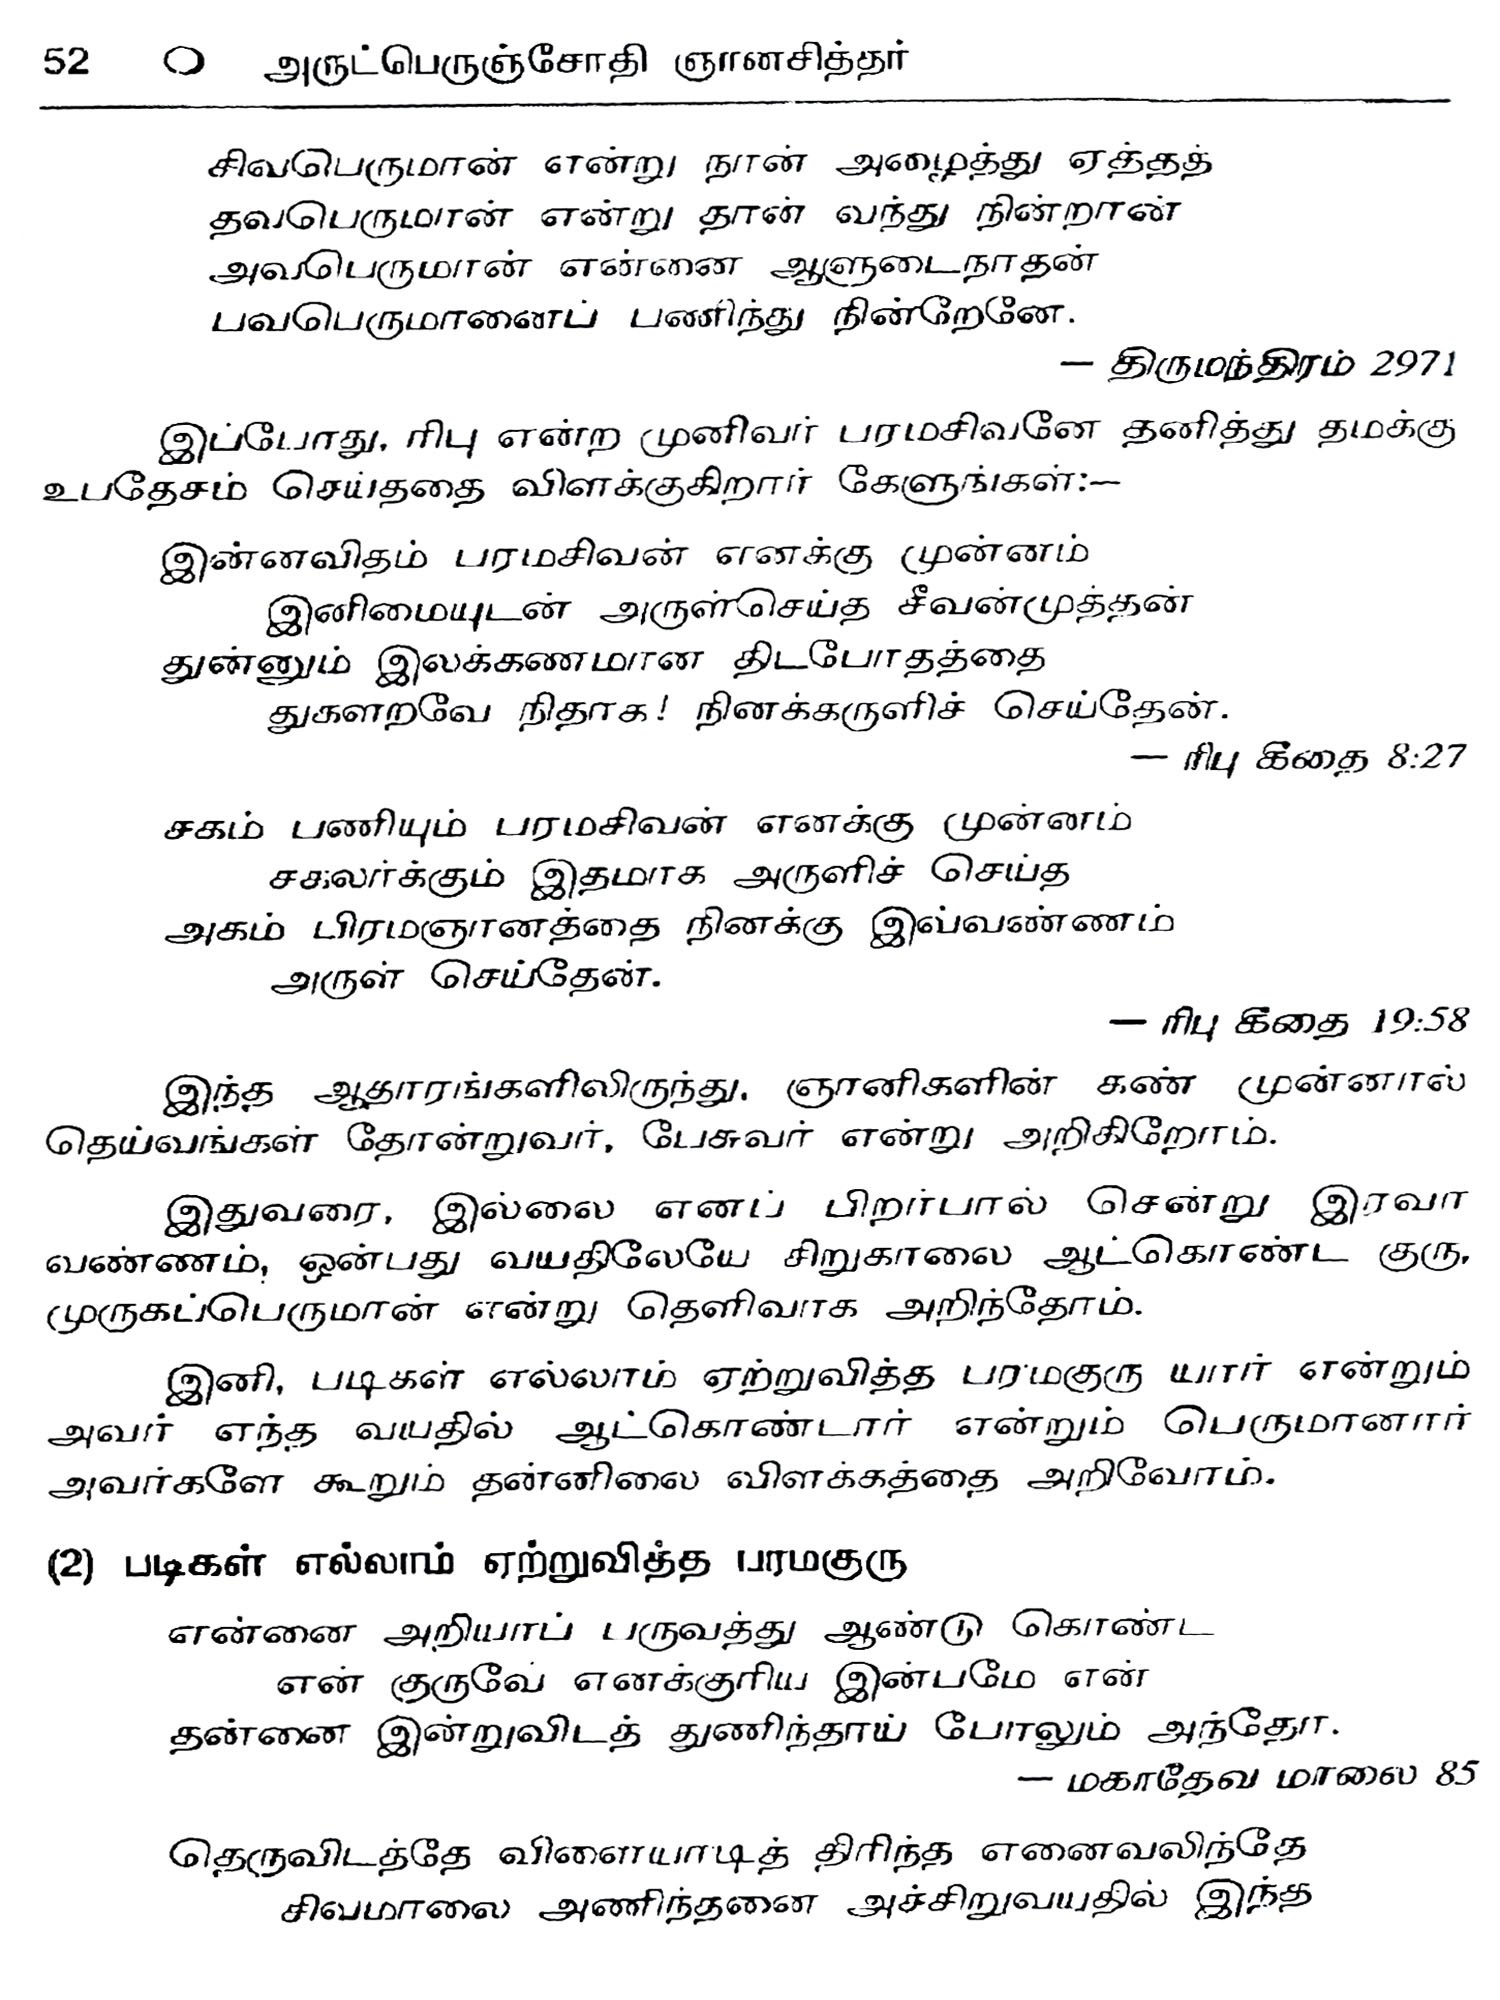 52 O அருட்பெருஞ்சோதி ஞானசித்தர்
சிவபெருமான் என்று நான் அழைத்து ஏத்தத்
தவபெருமான் என்று தான் வந்து நின்றான்
அவபெருமான் என்னை ஆளுடைநாதன்
பவபெருமானைப் பணிந்து நின்றேனே.
— திருமந்திரம் 2971
இப்போது, ரிபு என்ற முனிவர் பரமசிவனே தனித்து தமக்கு
உபதேசம் செய்ததை விளக்குகிறார் கேளுங்கள்:—
இன்னவிதம் பரமசிவன் எனக்கு முன்னம்
இனிமையுடன் அருள்செய்த சீவன்முத்தன்
துன்னும் இலக்கணமான திடபோதத்தை
துகளறவே நிதாக! நினக்கருளிச் செய்தேன்.
— ரிபு கீதை 8:27
சகம் பணியும் பரமசிவன் எனக்கு முன்னம்
சகலர்க்கும் இதமாக அருளிச் செய்த
அகம் பிரமஞானத்தை நினக்கு இவ்வண்ணம்
அருள் செய்தேன்.
— ரிபு கீதை 19:58
இந்த ஆதாரங்களிலிருந்து, ஞானிகளின் கண் முன்னால்
தெய்வங்கள் தோன்றுவர், பேசுவர் என்று அறிகிறோம்.
இதுவரை, இல்லை எனப் பிறர்பால் சென்று இரவா
வண்ணம், ஒன்பது வயதிலேயே சிறுகாலை ஆட்கொண்ட குரு,
முருகப்பெருமான் என்று தெளிவாக அறிந்தோம்.
இனி, படிகள் எல்லாம் ஏற்றுவித்த பரமகுரு யார் என்றும்
அவர் எந்த வயதில் ஆட்கொண்டார் என்றும் பெருமானார்
அவர்களே கூறும் தன்னிலை விளக்கத்தை அறிவோம்.
(2) படிகள் எல்லாம் ஏற்றுவித்த பரமகுரு
என்னை அறியாப் பருவத்து ஆண்டு கொண்ட
என் குருவே எனக்குரிய இன்பமே என்
தன்னை இன்றுவிடத் துணிந்தாய் போலும் அந்தோ.
— மகாதேவ மாலை 85
தெருவிடத்தே விளையாடித் திரிந்த எனைவலிந்தே
சிவமாலை அணிந்தனை அச்சிறுவயதில் இந்த